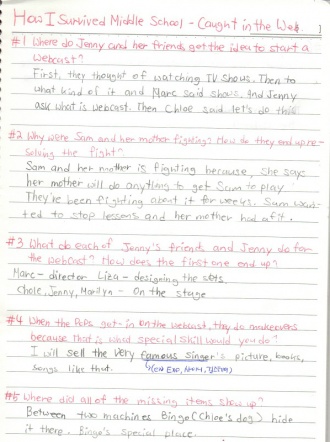 How I Survived Middle School - Caught in the Web
#1 Where do Jenny and her friends get the idea to start a
webcast?
First, they thought of watching TV shows. Then to
what kind of it and Marc said shows. And Jenny
ask what is webcast. Then Chloe said let's do this
#2 Why were Sam and her mother fighting? How do they end up re-
solving the fight?
Sam and her mother is fighting because, she says
her mother will do anything to get Sam to play
They've been fighting about it for weeks. Sam wan-
ted to stop lessons and her mother had a fit.
#3 What do each of Jenny's friends and Jenny do for
the webcast? How does the first one end up?
Marc - director Liza - designing the sets,
Chole, Jenny, Marilyn - On the stage
#4 When the Pops got in on the webcast, they do makeovers
because that is what special skill would you do?
I will sell the very famous singer's picture, books,
songs like that.
#5 Where did all of the missing items show up?
Between two machines Binge (Chloe's dog) hide
it there. Binge's special place.